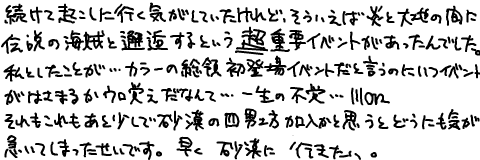 続けて起こしに行く気がしていたけれど、そういえば炎と大地の間に
伝説の海賊と邂逅するという超重要イベントがあったんでした。
私としたことが…カラーの総領初登場イベントだと言うのにいつイベント
がはさまるかウロ覚えだなんて…一生の不覚…illorz
それもこれもあと少しで砂漠の四男坊加入かと思うとどうにも気が
急いてしまったせいです。早く 砂漠に 行きたい。